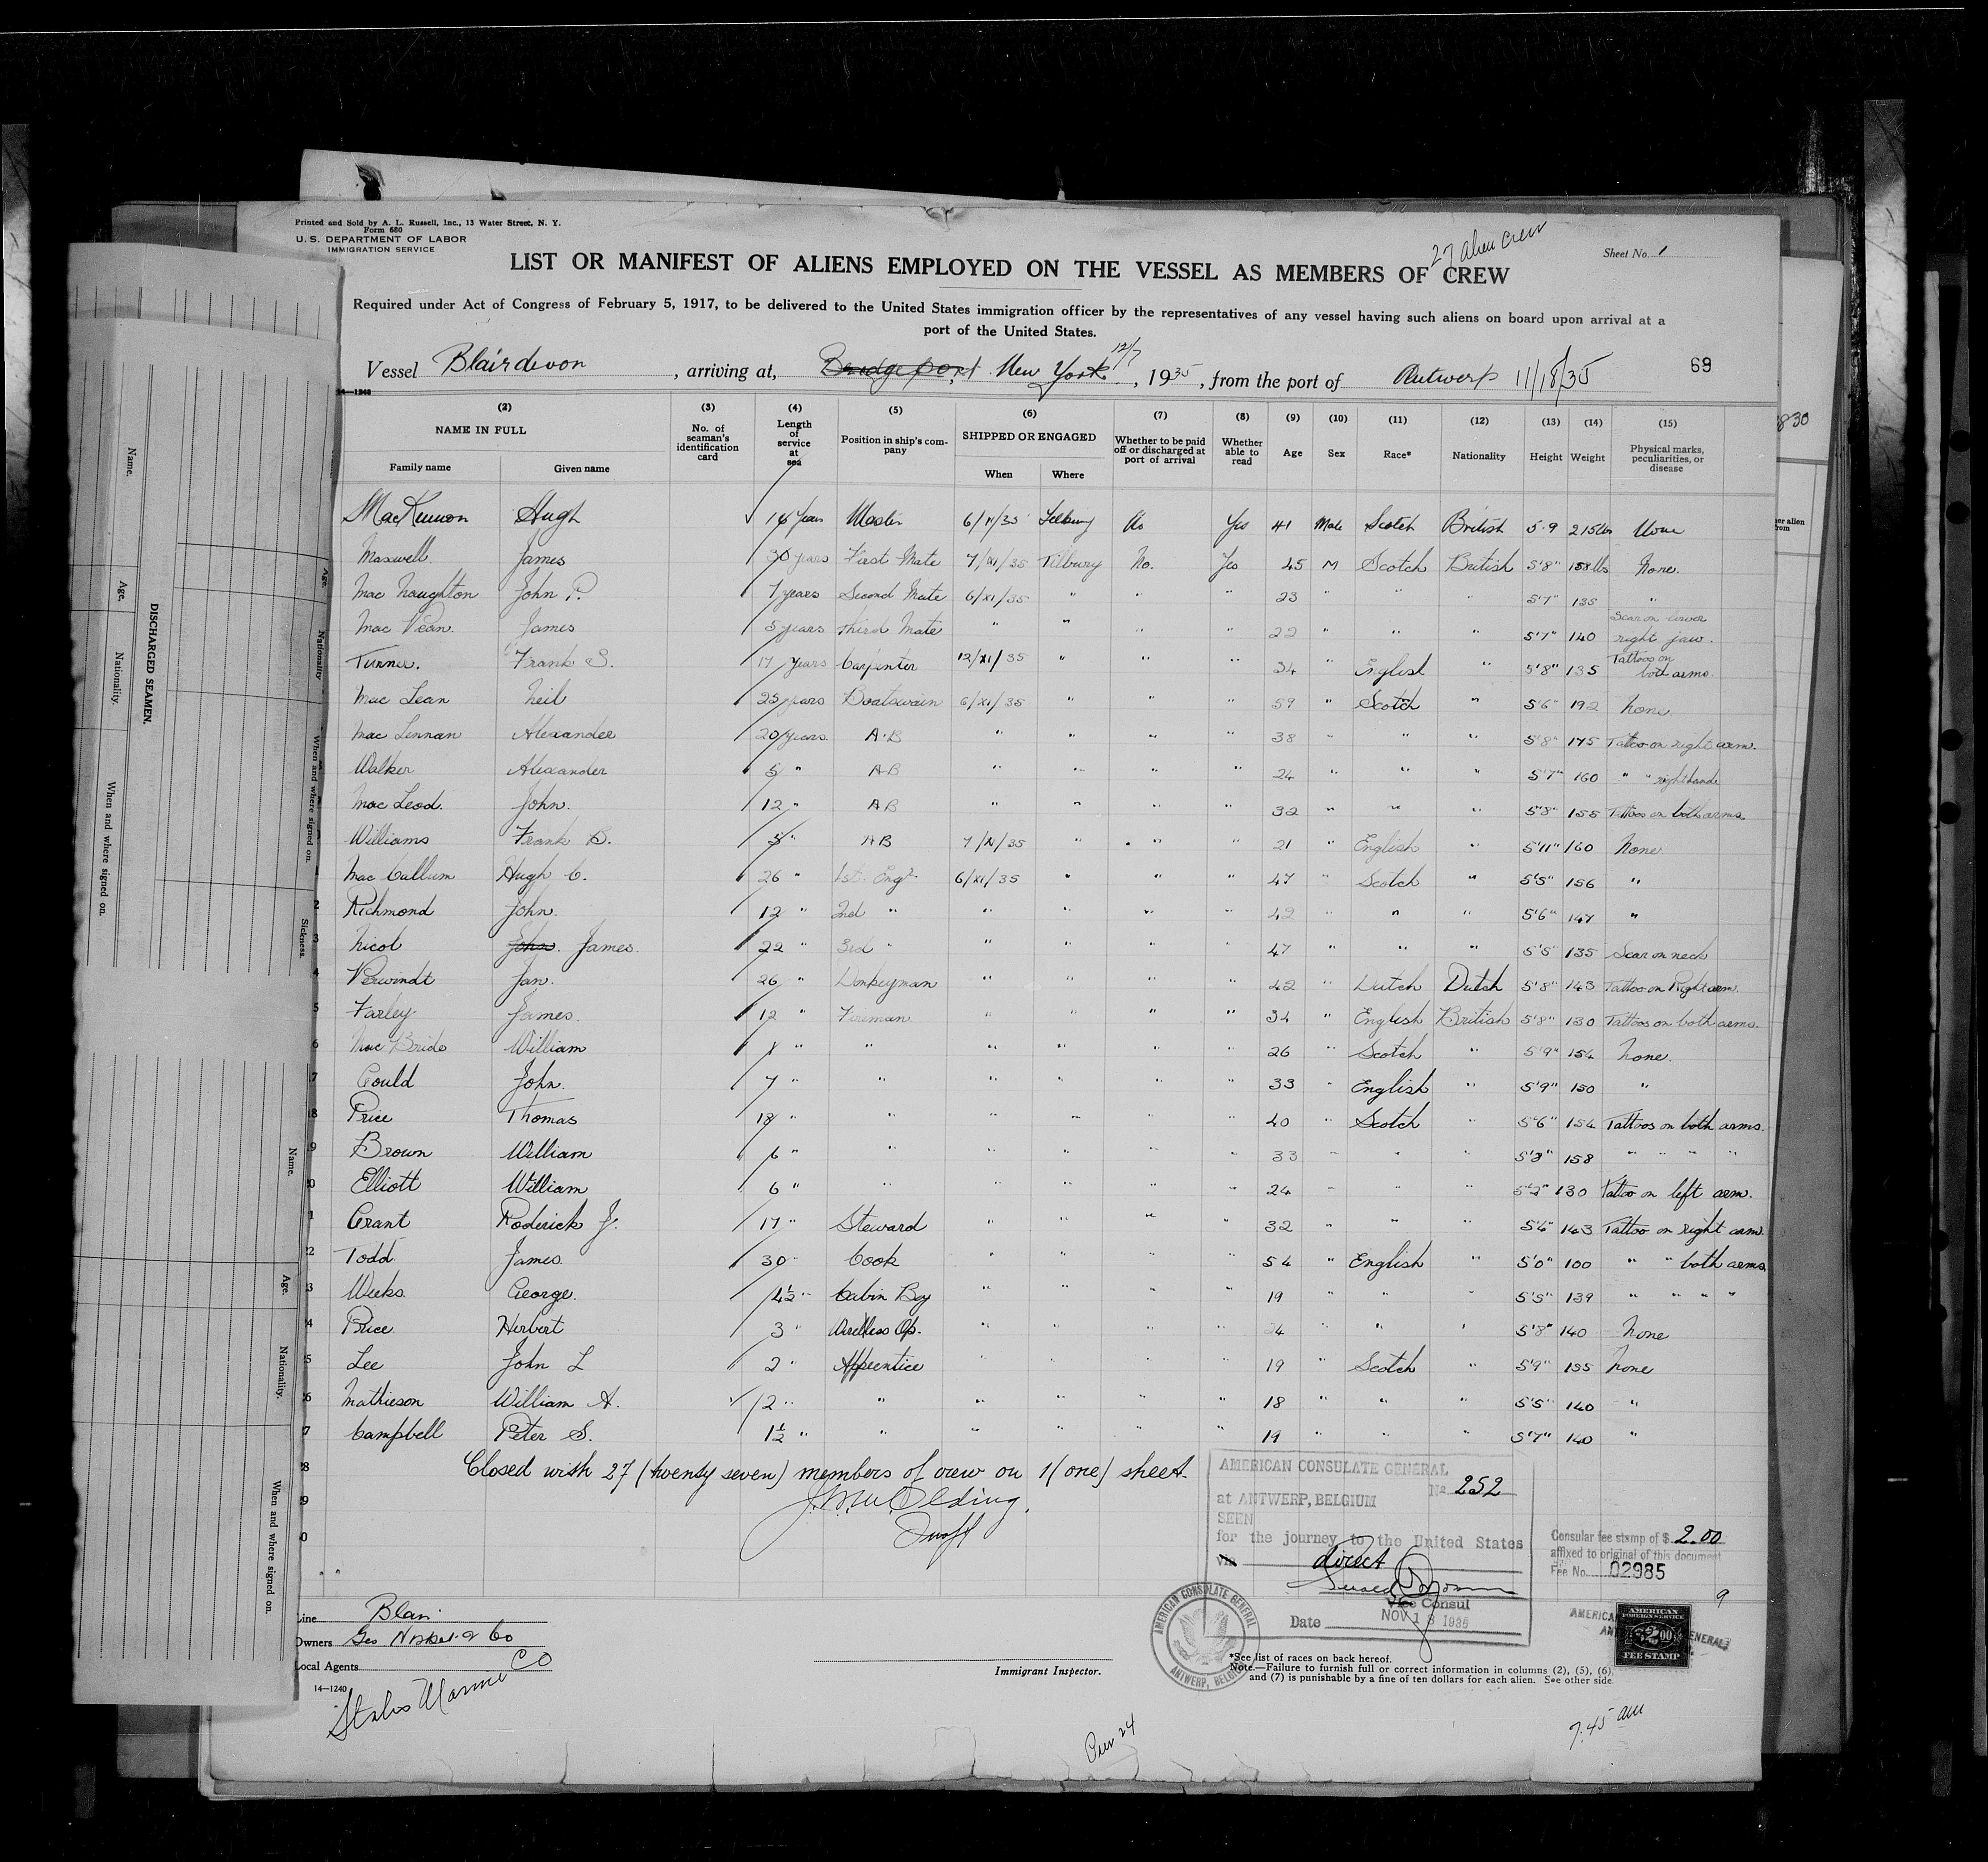 Printed and Sold by A. L. Russell, Inc., 13 Water Street, N. Y.
Form 680
U. S. DEPARTMENT OF LABOR
IMMIGRATION SERVICE
27 alien crew
Sheet No. 1
LIST OR MANIFEST OF ALIENS EMPLOYED ON THE VESSEL AS MEMBERS OF CREW
Required under Act of Congress of February 5, 1917, to be delivered to the United States immigration officer by the representatives of any vessel having such aliens on board upon arrival at a
port of the United States.
12/7
Vessel Blairdevon , arriving at, Bridgeport New York , 1935 , from the port of Antwerp 11/18/35
69
14—1240
(2) (3) (4) (5) (6) (7) (8) (9) (10) (11) (12) (13) (14) (15)
NAME IN FULL No. of seaman's identification card Length of service at sea Position in ship's company SHIPPED OR ENGAGED Whether to be paid off or discharged at port of arrival Whether able to read Age Sex Race* Nationality Height Weight Physical marks, peculiarities, or disease
Family name Given name When Where
MacKinnon Hugh 14 Years Master 6/11/35 Tilbury No Yes 41 Male Scotch British 5-9 215lbs None
Maxwell James 30 years First Mate 7/XI/35 Tilbury No. Yes 45 M Scotch British 5'8" 158lbs None.
Mac Naughton John P. 7 years Second Mate 6/XI/35 " " " 23 " " " 5'7" 135 "
Mac Vean. James 5 years Third Mate " " " " 22 " " " 5'7" 140 Scar on lower right jaw.
Turner. Frank S. 17 years Carpenter 12/XI/35 " " " 34 " English " 5'8" 135 Tattoos on both arms.
Mac Lean Neil 25 years Boatswain 6/XI/35 " " " 59 " Scotch " 5'6" 192 None.
Mac Lennan Alexander 20 years A.B " " " " 38 " " " 5'8" 175 Tattoo on right arm.
Walker Alexander 5 " AB " " " " 24 " " " 5'7" 160 " " right hand
Mac Leod. John. 12 " AB " " " " 32 " " " 5'8" 155 Tattoos on both arms.
Williams Frank B. 5 " AB 7/XI/35 " " " 21 " English " 5'11" 160 None
Mac Callum Hugh C. 26 " 1st. Engr. 6/XI/35 " " " 47 " Scotch " 5'5" 156 "
Richmond John. 12 " 2nd " " " " " 42 " " " 5'6" 147 "
Nicol John. James. 22 " 3rd " " " " " 47 " " " 5'5" 135 Scar on neck
Verwindt Jan. 26 " Donkeyman " " " " 42 " Dutch Dutch 5'8" 143 Tattoo on Right arm.
Farley James. 12 " Fireman. " " " " 34 " English British 5'8" 130 Tattoos on both arms.
Mac Bride William 1 " " " " " " 26 " Scotch " 5'9" 154 None.
Gould John. 7 " " " " " " 33 " English " 5'9" 150 "
Price Thomas 18 " " " " " " 40 " Scotch " 5'6" 154 Tattoos on both arms.
Brown William 6 " " " " " " 33 " " " 5'3" 158 " " " "
Elliott William 6 " " " " " " 24 " " " 5'2" 130 Tattoo on left arm.
Grant Roderick J. 17 " Steward " " " " 32 " " " 5'6" 143 Tattoo on right arm.
Todd. James. 30 " Cook " " " " 54 " English " 5'0" 100 " " both arms.
Weeks. George. 4½ " Cabin Boy " " " " 19 " " " 5'5" 139 " " " "
Price Herbert 3 " Wireless Op. " " " " 24 " " " 5'8" 140 None
Lee John L 2 " Apprentice " " " " 19 " Scotch " 5'9" 135 None
Mathieson William A. 2 " " " " " " 18 " " " 5'5" 140 "
Campbell Peter S. 1½ " " " " " " 19 " " " 5'7" 140 "
Closed with 27 (twenty seven) members of crew on 1 (one) sheet.
AMERICAN CONSULATE GENERAL
No 252
at ANTWERP, BELGIUM
SEEN
for the journey to the United States
via direct
Vice Consul
Date NOV 18 1935
Consular fee stamp of $ 2.00
affixed to original of this document
Fee No. 02985
9
AMERICAN CONSULATE GENERAL
ANTWERP, BELGIUM
AMERICAN
FOREIGN SERVICE
$2.00
FEE STAMP
Line Blair
Owners Geo Nisbet & Co
Local Agents
14—1240
States Marine Co
Immigrant Inspector.
*See list of races on back hereof.
Note.—Failure to furnish full or correct information in columns (2), (5), (6),
and (7) is punishable by a fine of ten dollars for each alien. See other side.
7.45 am
830
DISCHARGED SEAMEN.
Name.
Age.
Nationality.
When and where signed on.
Age.
Nationality
When and where signed on.
Sickness.
Name.
Age.
Nationality.
When and where signed on.